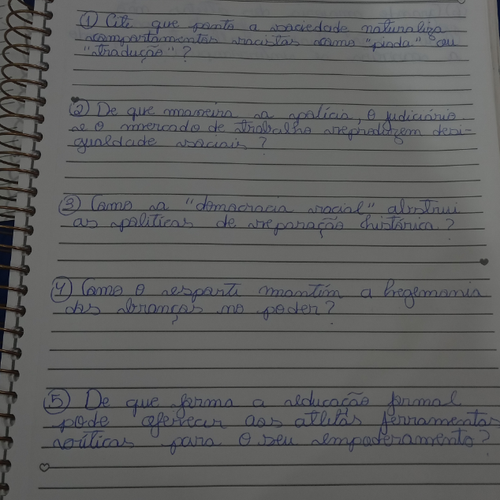 ① Até que ponto a sociedade naturaliza
comportamentos racistas como "piada" ou
"tradução"?
② De que maneira a polícia, o judiciário
e o mercado de trabalho reproduzem desi-
gualdade raciais?
③ Como a "democracia racial" obstrui
as políticas de reparação histórica?
④ Como o esporte mantém a hegemonia
dos brancos no poder?
⑤ De que forma a educação formal
pode oferecer aos atletas ferramentas
políticas para o seu empoderamento?